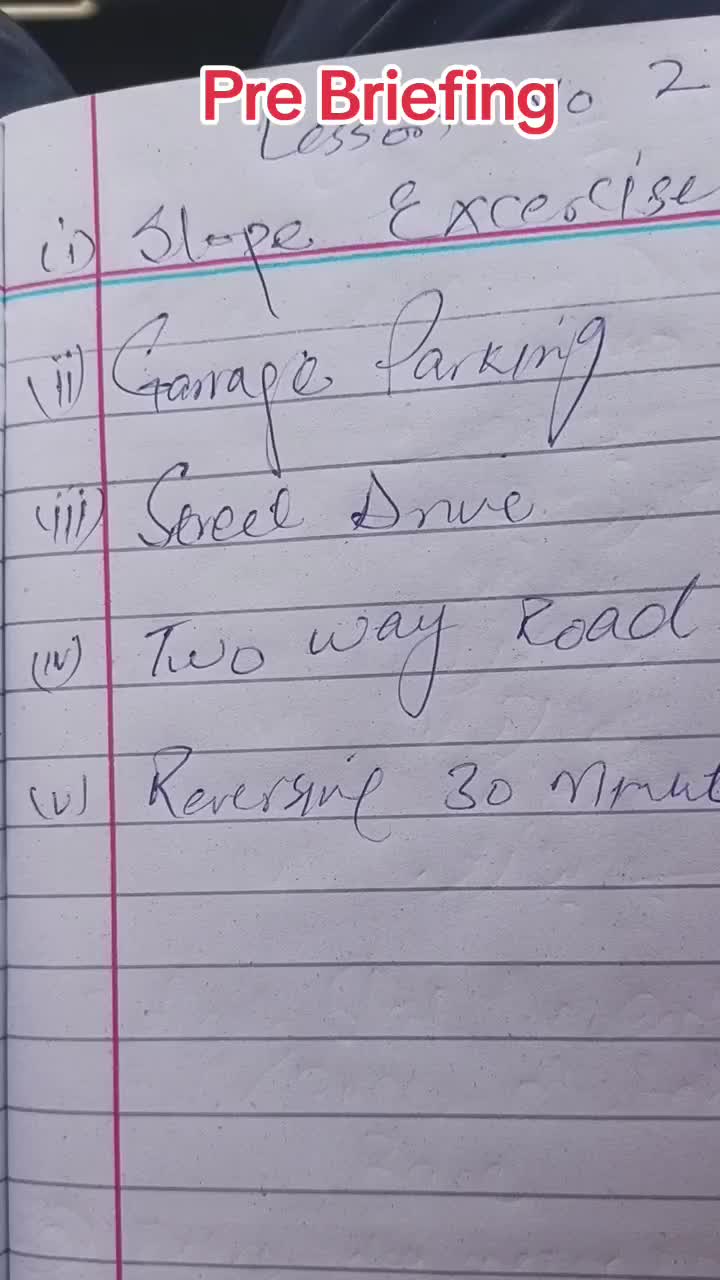 Pre Briefing
Lesson No 2
(i) Slope Excercise
(ii) Garrage Parking
(iii) Street Drive
(iv) Two way Road
(v) Reversing 30 Minut